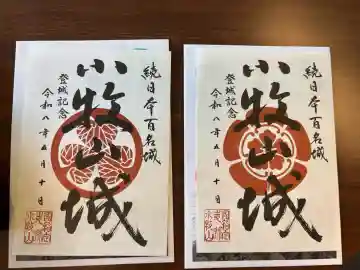 続日本百名城
小牧山城
登城記念
令和八年五月十日
続日本百名城
小牧山城
登城記念
令和八年五月十日